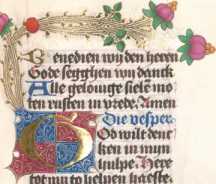 Benedien wy den heren
Gode segghen wy danck
Alle gelouige sielẽ mo
ten rusten in vrede. Amen
Die vesper.
God wilt denc
ken in myn
hulpe. Here
tot mi to helpen haeste.